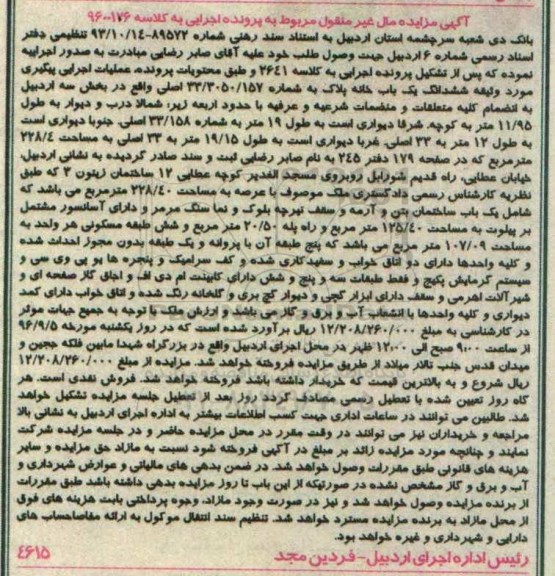 آگهی مزایده مال غیر منقول مربوط به پرونده اجرایی به کلاسه ۹۶۰۰۱۷۶
بانک دی شعبه سرچشمه استان اردبیل به استناد سند رهنی شماره ۸۹۵۷۲-۹۳/۱۰/۱۴ تنظیمی دفتر
اسناد رسمی شماره ۶ اردبیل جهت وصول طلب خود علیه آقای صابر رضایی مبادرت به صدور اجراییه
نموده که پس از تشکیل پرونده اجرایی به کلاسه ۲۶۴۱ و طبق محتویات پرونده، عملیات اجرایی پیگیری
مورد وثیقه ششدانگ یک باب خانه پلاک به شماره ۳۳/۳۰۵۰/۱۵۷ اصلی واقع در بخش سه اردبیل
به انضمام کلیه متعلقات و منضمات شرعیه و عرفیه با حدود اربعه زیر: شمالا درب و دیوار به طول
۱۱/۹۵ متر به کوچه. شرقا دیواری است به طول ۱۹ متر به شماره ۳۳/۱۵۸ اصلی. جنوبا دیواری است
به طول ۱۲ متر به ۳۳ اصلی. غربا دیواری است به طول ۱۹/۱۵ متر به ۳۳ اصلی به مساحت ۲۲۸/۴
مترمربع که در صفحه ۱۷۹ دفتر ۲۴۵ به نام صابر رضایی ثبت و سند صادر گردیده به نشانی اردبیل،
خیابان عطایی، راه قدیم شورابیل روبروی مسجد الغدیر کوچه عطایی ۱۲ ساختمان زیتون ۳ که طبق
نظریه کارشناس رسمی دادگستری ملک موصوف با عرصه به مساحت ۲۲۸/۴۰ مترمربع می باشد که
شامل یک باب ساختمان بتن و آرمه و سقف تیرچه بلوک و نما سنگ مرمر و دارای آسانسور مشتمل
بر پیلوت به مساحت ۱۲۵/۴۰ متر مربع و راه پله ۲۰/۵۰ متر مربع و شش طبقه مسکونی هر واحد به
مساحت ۱۰۷/۰۹ متر مربع می باشد که پنج طبقه آن با پروانه و یک طبقه بدون مجوز احداث شده
و کلیه واحدها دارای دو اتاق خواب و سفیدکاری شده و کف سرامیک و پنجره ها یو پی وی سی و
سیستم گرمایش پکیج و فقط طبقات سه و پنج و شش دارای کابینت ام دی اف و اجاق گاز صفحه ای و
شیرآلات اهرمی و سقف دارای ابزار گچی و دیوار گچ بری و گلخانه رنگ شده و اتاق خواب دارای کمد
دیواری و کلیه واحدها با انشعاب آب و برق و گاز می باشد و ارزش ملک با توجه به جمیع جهات موثر
در کارشناسی به مبلغ ۱۲/۲۰۸/۲۶۰/۰۰۰ ریال برآورد شده است که در روز یکشنبه مورخه ۹۶/۹/۵
از ساعت ۹:۰۰ صبح الی ۱۲:۰۰ ظهر در محل اجرای اردبیل واقع در بزرگراه شهدا مابین فلکه ججین و
میدان قدس جنب تالار میلاد از طریق مزایده فروخته خواهد شد. مزایده از مبلغ ۱۲/۲۰۸/۲۶۰/۰۰۰
ریال شروع و به بالاترین قیمت که خریدار داشته باشد فروخته خواهد شد. فروش نقدی است. هر
گاه روز تعیین شده با تعطیل رسمی مصادف گردد روز بعد از تعطیل جلسه مزایده تشکیل خواهد
شد. طالبین می توانند در ساعات اداری جهت کسب اطلاعات بیشتر به اداره اجرای اردبیل به نشانی بالا
مراجعه و خریداران نیز می توانند در وقت مقرر در محل مزایده حاضر و در جلسه مزایده شرکت
نمایند و چنانچه مورد مزایده زائد بر مبلغ در آگهی فروخته شود نسبت به مازاد حق مزایده و سایر
هزینه های قانونی طبق مقررات وصول خواهد شد. در ضمن بدهی های مالیاتی و عوارض شهرداری و
آب و برق و گاز مشخص نشده در صورتیکه از این باب تا روز مزایده بدهی داشته باشد طبق مقررات
از برنده مزایده وصول خواهد شد و نیز در صورت وجود مازاد، وجوه پرداختی بابت هزینه های فوق
از محل مازاد به برنده مزایده مسترد خواهد شد. تنظیم سند انتقال موکول به ارائه مفاصاحساب های
دارایی و شهرداری و غیره خواهد بود.
رئیس اداره اجرای اردبیل - فردین مجد
۴۶۱۵